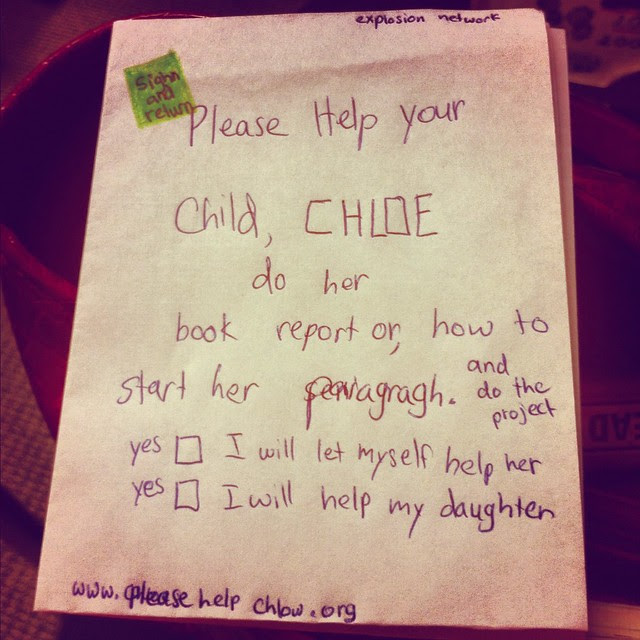 explosion network
Siahn
and
return
Please Help your
Child, CHLOE
do her
book report or, how to
start her paragragh. and
do the
project
yes □ I will let myself help her
yes □ I will help my daughter
www. please help chlow.org